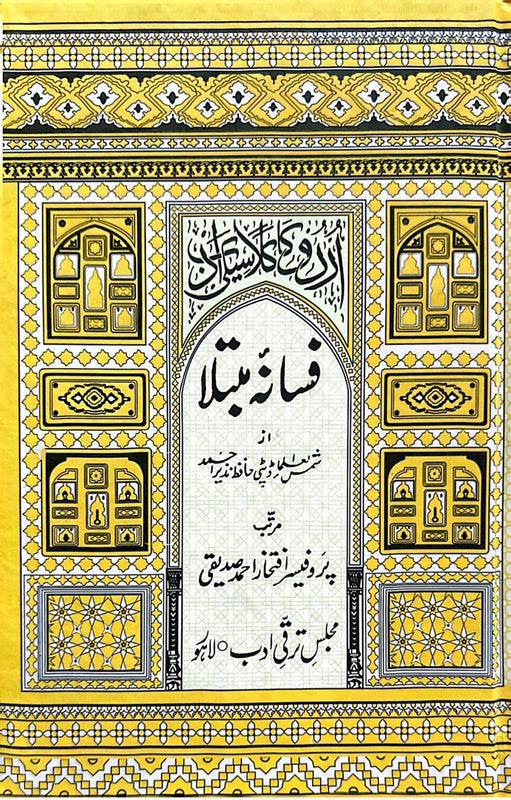 اردو کا کلاسیکی ادب
فسانۂ مبتلا
از
شمس العلما ڈپٹی حافظ نذیر احمد
مرتّب
پروفیسر افتخار احمد صدیقی
مجلسِ ترقّیِ ادب ○ لاہور